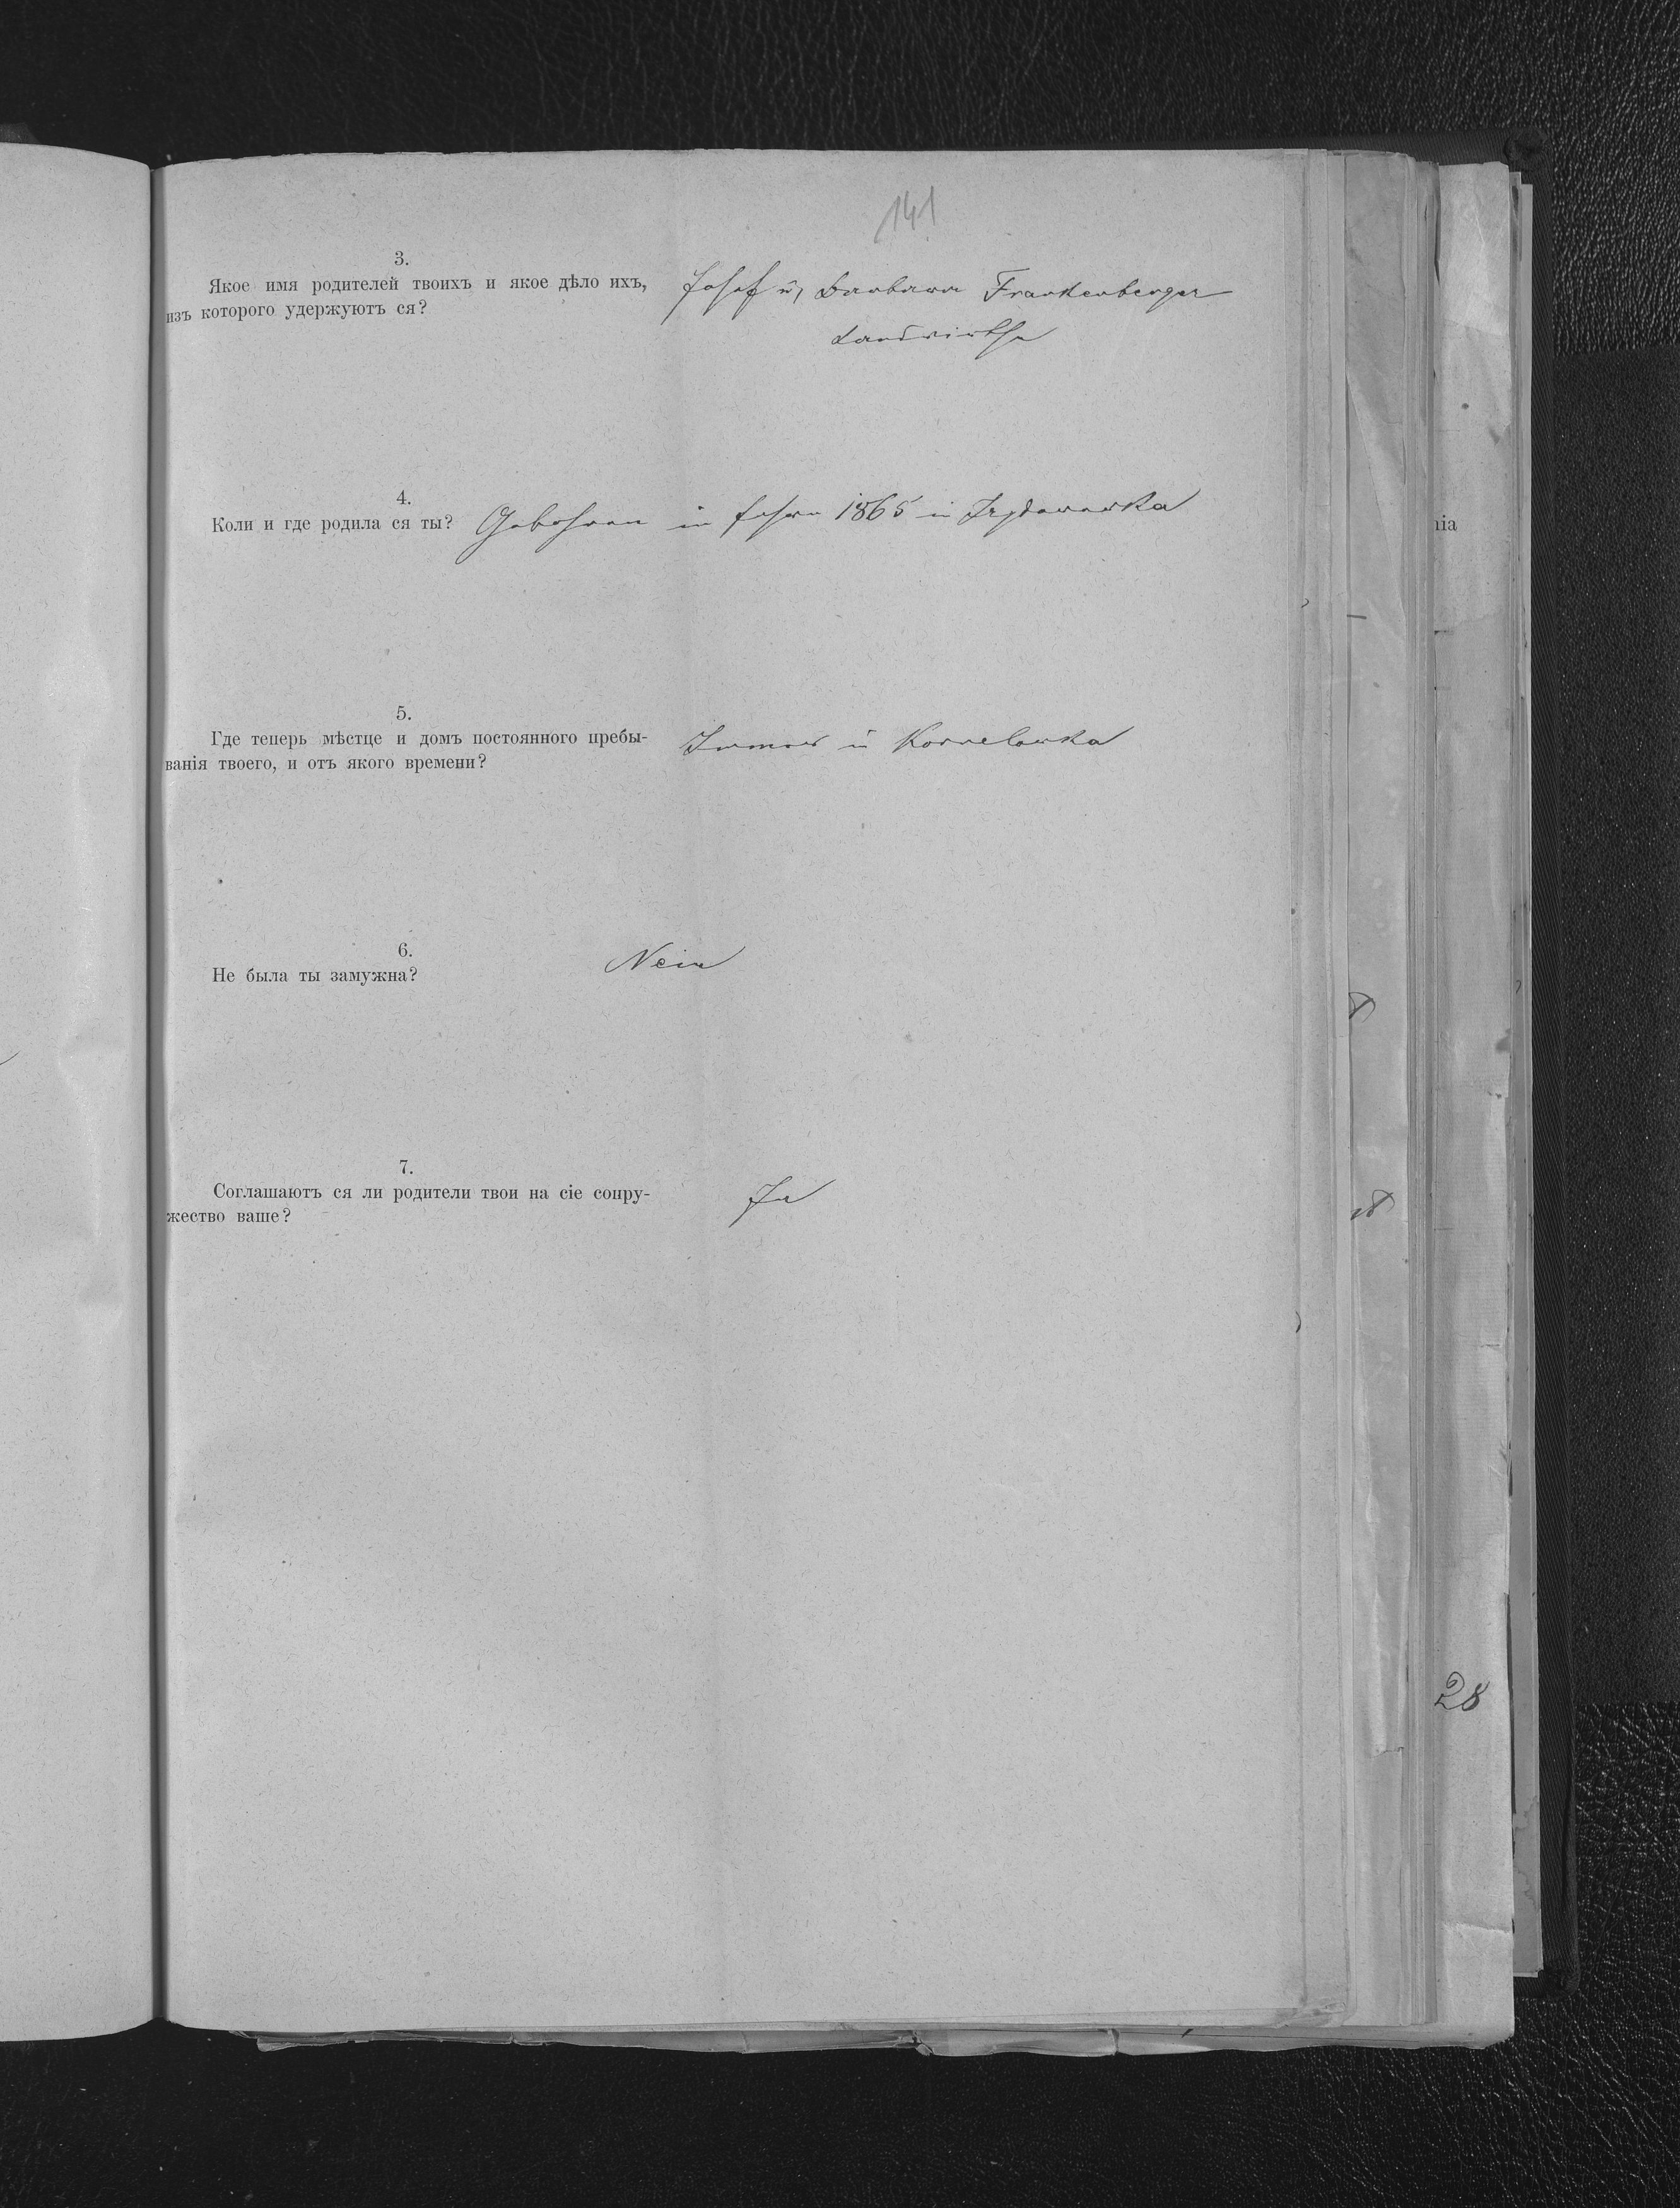 141
3.
Якое имя родителей твоихъ и якое дѣло ихъ,
изъ которого удержуютъ ся?
Josef u, Barbara Frankenberger
Landwirthe
4.
Коли и где родила ся ты?
Gebohren im Jahre 1865 in
5.
Где теперь мѣстце и домъ постоянного пребы-
ванія твоего, и отъ якого времени?
Immer in Kornelowka
6.
Не была ты замужна?
Nein
7.
Соглашаютъ ся ли родители твои на сіе супру-
жество ваше?
Ja
nia
28